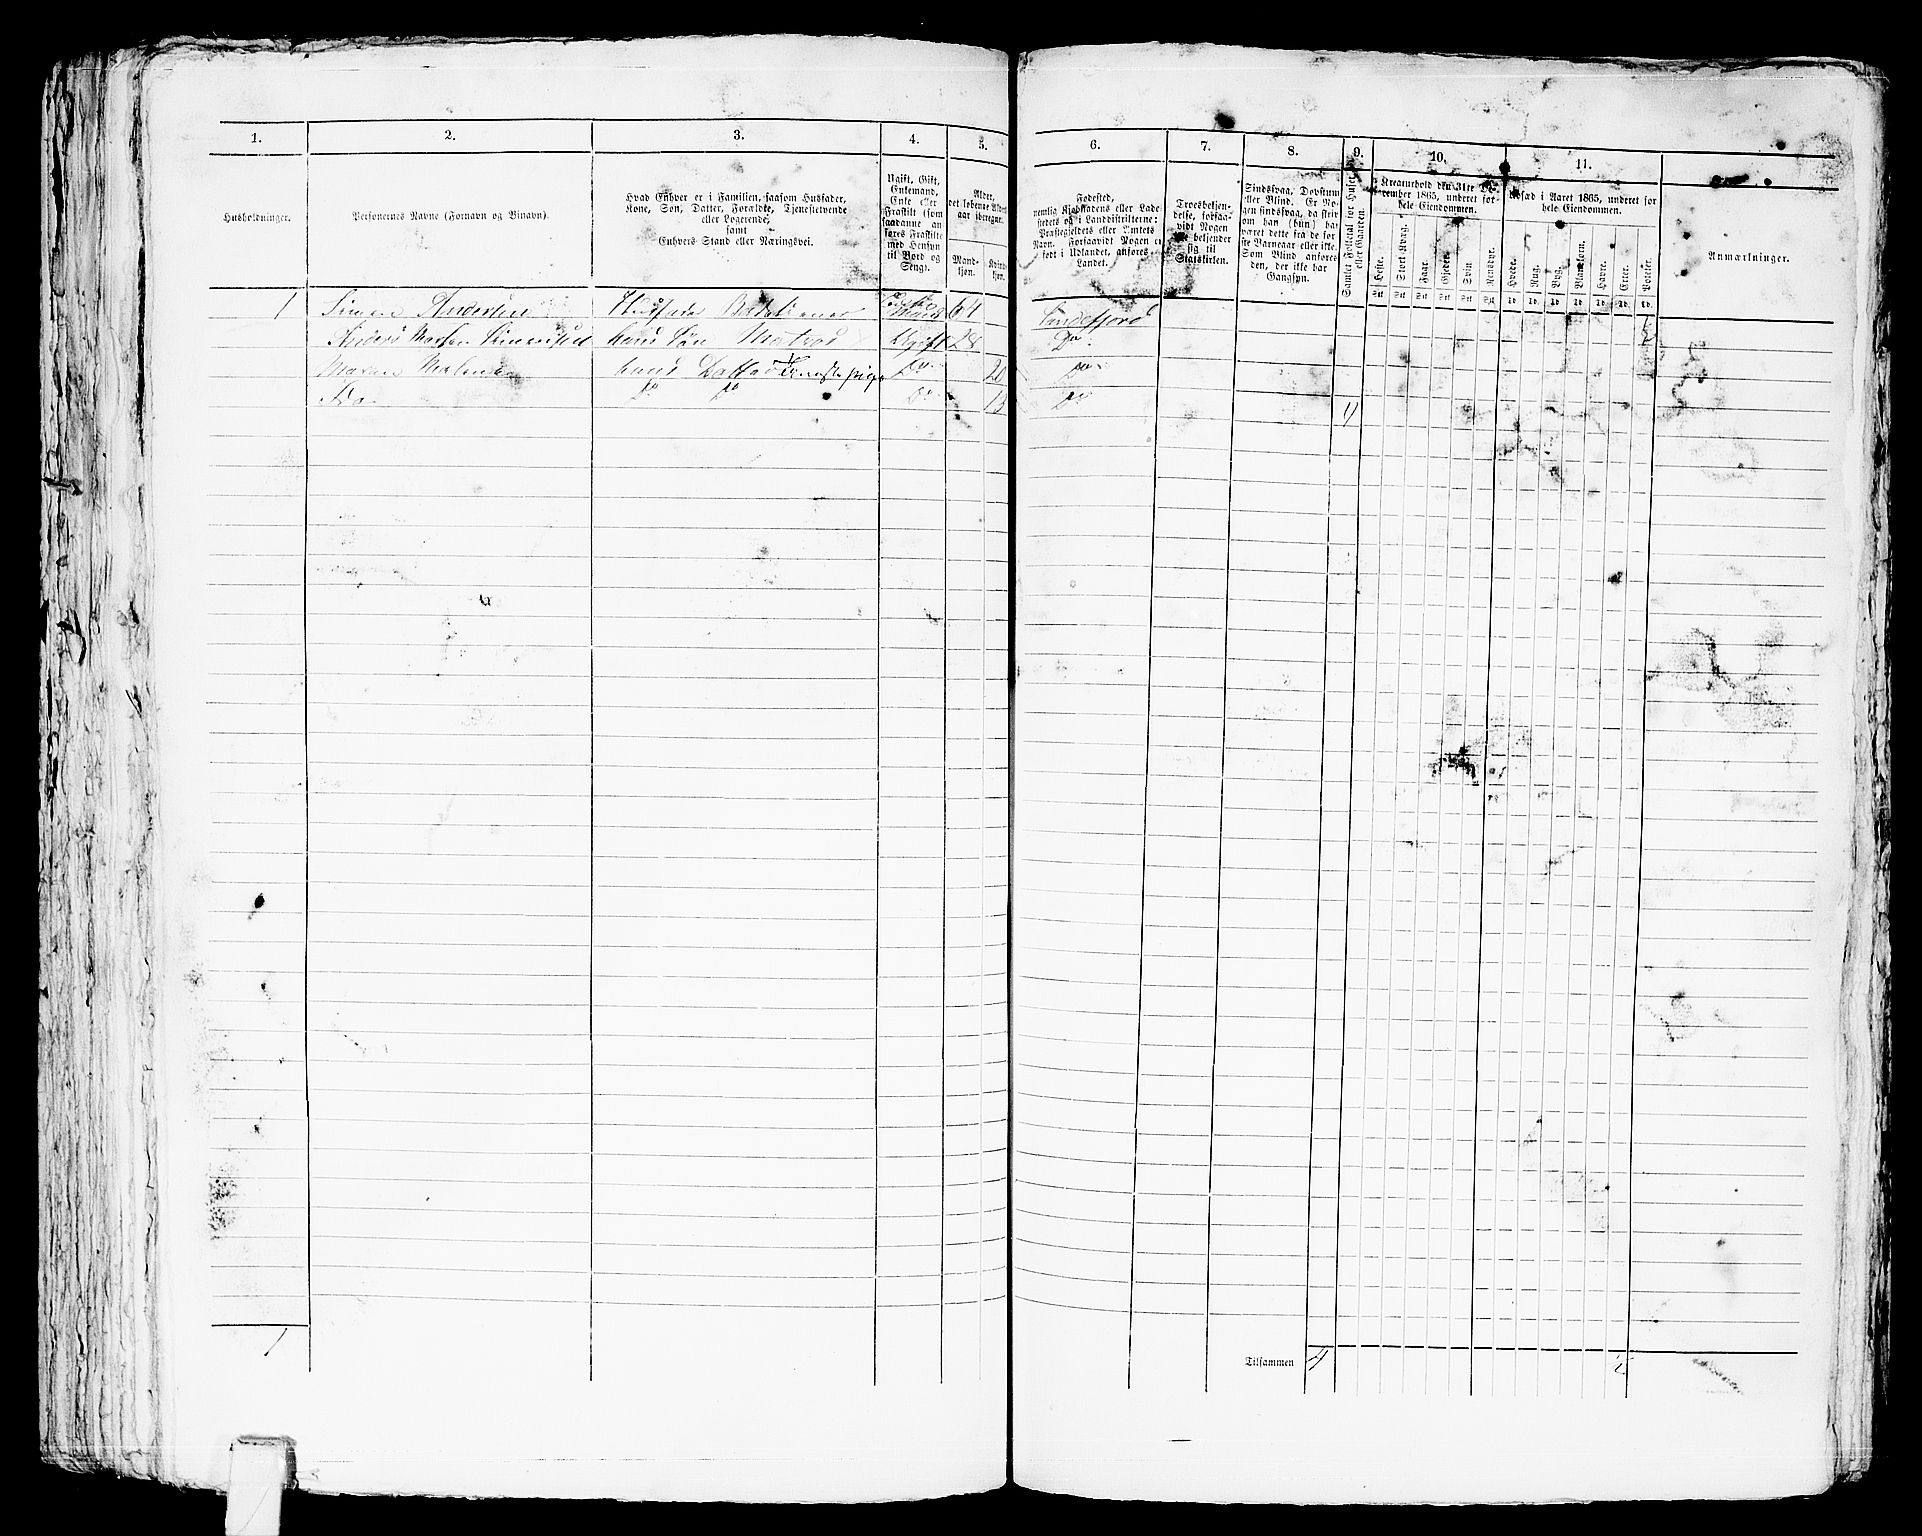 1.
2.
3.
4.
5.
Husholdninger.
Personernes Navne (Fornavn og Binavn).
Hvad Enhver er i Familien, saasom Husfader,
Kone, Søn, Datter, Forældre, Tjenestetyende
eller Logerende,
samt
Enhvers Stand eller Næringsvei.
Ugift, Gift,
Enkemand,
Enke eller
Fraskilt (som
saadanne an-
føres Fraskilte
med Hensyn
til Bord og
Seng).
Alder,
det løbende Alders-
aar iberegnet.
Mand-
kjøn.
Kvinde-
kjøn.
1 Simen Andersen Husfader Enke- 64
Anders hans Søn Matros Ugift 28
Maren hans Datter Tjenestepige Do 20
Do Do Do
1
6.
7.
8.
9.
10.
11.
Fødested,
nemlig Kjøbstadens eller Lade-
stedets og i Landdistrikterne:
Præstegjeldets eller Amtets
Navn. Forsaavidt Nogen er
født i Udlandet, anføres
Landet.
Troesbekjen-
delse, forsaa-
vidt Nogen
ikke bekjender
sig til
Statskirken.
Sindssvag, Døvstum
eller Blind. Er No-
gen sindssvag, da skriv
om han (hun) har
været dette fra de før-
ste Barneaar eller ikke.
Som Blind anføres
den, der ikke har
Gangsyn.
Samlet Folketal for Huset
eller Gaarden.
Kreaturhold den 31te De-
cember 1865, underet for
hele Eiendommen.
Udsæd i Aaret 1865, underet for
hele Eiendommen.
Anmærkninger.
Heste.
Stort Kvæg.
Faar.
Gjeder.
Svin.
Rensdyr.
Hvede.
Rug.
Byg.
Blandkorn.
Havre.
Erter.
Poteter.
Stk Stk Stk Stk Stk Stk Td. Td. Td. Td. Td. Td. Td.
Sandefjord
Do
Do
Do
4
Tilsammen 4